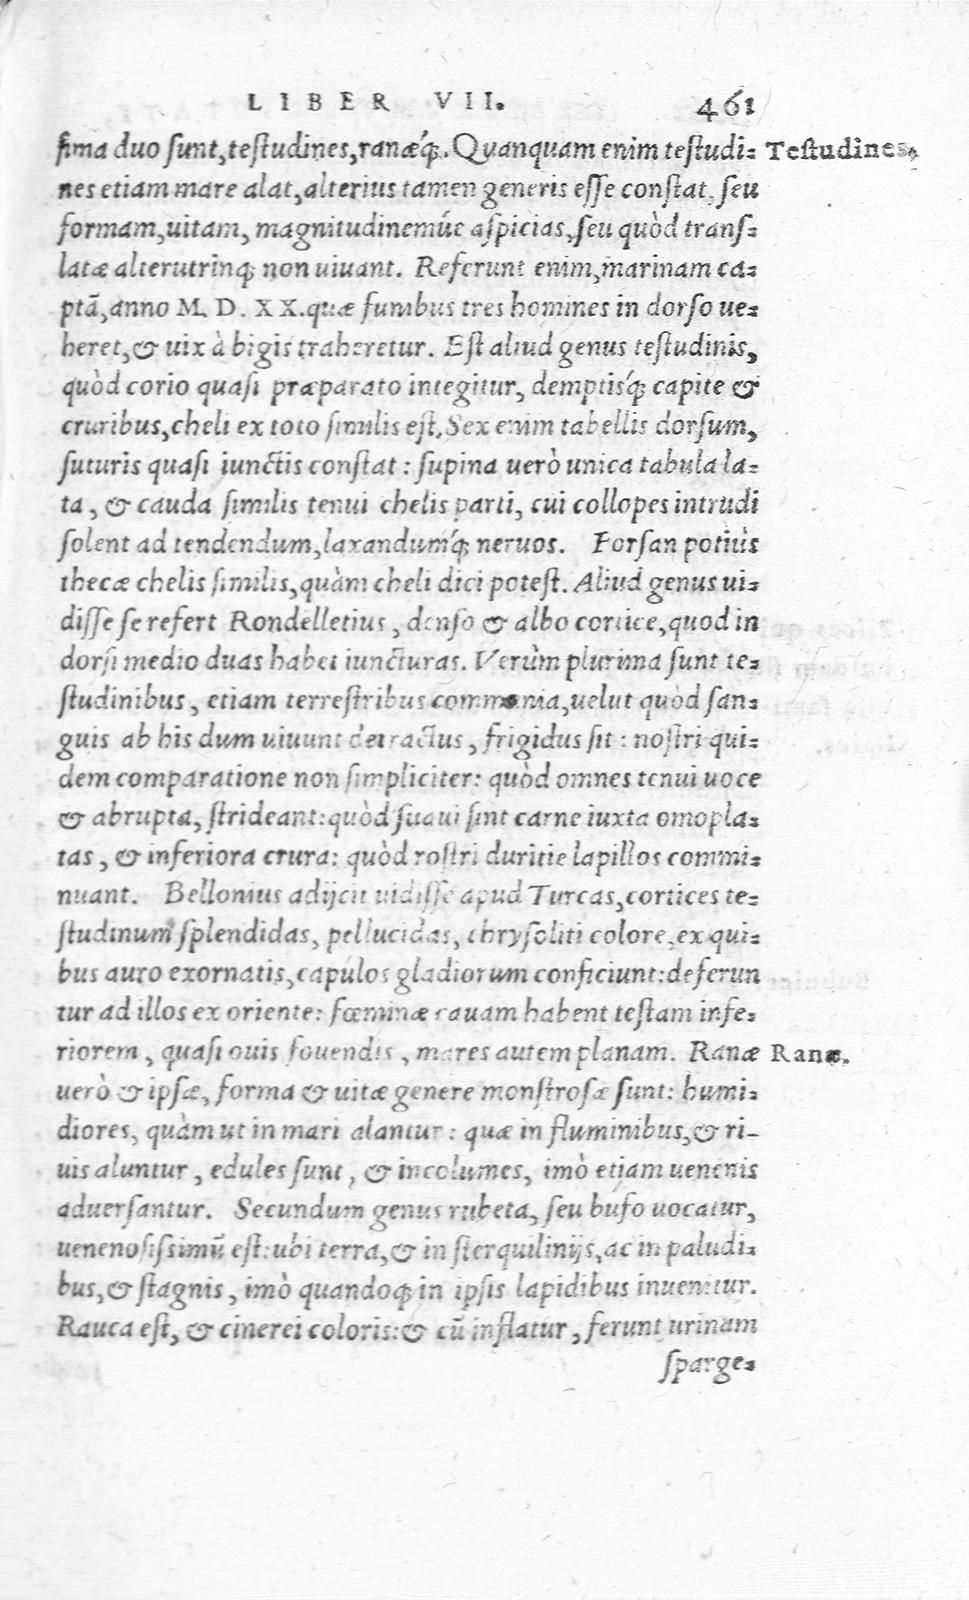 LIBER VII. 461
ſima duo ſunt, teſtudines, ranæq́;. Quanquam enim teſtudi- Teſtudines.
nes etiam mare alat, alterius tamen generis eſſe conſtat, ſeu
formam, uitam, magnitudinemúe aſpicias, ſeu quòd tranſ-
latæ alterutrinq; non uiuant. Referunt enim, marinam ca-
ptã, anno M. D. XX. quæ funibus tres homines in dorſo ue-
heret, & uix à bigis traheretur. Eſt aliud genus teſtudinis,
quòd corio quaſi præparato integitur, demptisq́; capite &
cruribus, cheli ex toto ſimilis eſt. Sex enim tabellis dorſum,
ſuturis quaſi iunctis conſtat: ſupina uerò unica tabula la-
ta, & cauda ſimilis tenui chelis parti, cui collopes intrudi
ſolent ad tendendum, laxandumq́; neruos. Forſan potiùs
thecæ chelis ſimilis, quàm cheli dici poteſt. Aliud genus ui-
diſſe ſe refert Rondelletius, denſo & albo cortice, quod in
dorſi medio duas habet iuncturas. Verùm plurima ſunt te-
ſtudinibus, etiam terreſtribus communia, uelut quòd ſan-
guis ab his dum uiuunt detractus, frigidus ſit: noſtri qui-
dem comparatione non ſimpliciter: quòd omnes tenui uoce
& abrupta, ſtrideant: quòd ſuaui ſint carne iuxta omopla-
tas, & inferiora crura: quòd roſtri duritie lapillos commi-
nuant. Bellonius adijcit uidiſſe apud Turcas, cortices te-
ſtudinum ſplendidas, pellucidas, chryſoliti colore, ex qui-
bus auro exornatis, capulos gladiorum conficiunt: deferun
tur ad illos ex oriente: fœminæ cauam habent teſtam infe-
riorem, quaſi ouis fouendis, mares autem planam. Ranæ Ranæ.
uerò & ipſæ, forma & uitæ genere monſtroſæ ſunt: humi-
diores, quàm ut in mari alantur: quæ in fluminibus, & ri-
uis aluntur, edules ſunt, & incolumes, imò etiam uenenis
aduerſantur. Secundum genus rubeta, ſeu bufo uocatur,
uenenoſiſſimũ eſt: ubi terra, & in ſterquilinijs, ac in paludi-
bus, & ſtagnis, imò quandoq; in ipſis lapidibus inuenitur.
Rauca eſt, & cinerei coloris: & cũ inflatur, ferunt urinam
ſparge-